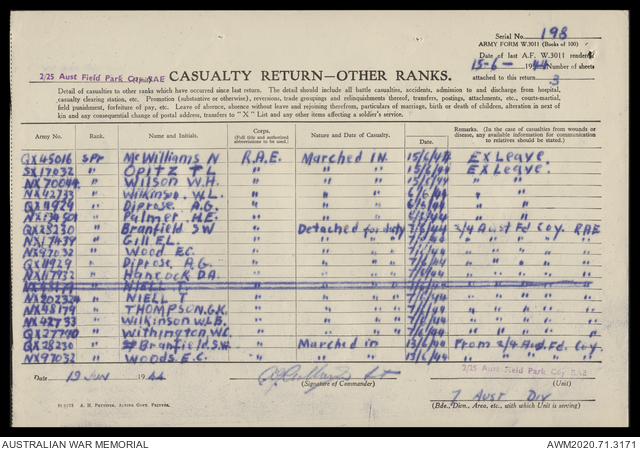 Serial No. 198
ARMY FORM W.3011 (Books of 100)
Date of last A.F. W.3011 rendered
15-6- 1944 Number of sheets
attached to this return 3
2/25 Aust Field Park Coy RAE CASUALTY RETURN—OTHER RANKS.
Detail of casualties to other ranks which have occurred since last return. The detail should include all battle casualties, accidents, admission to and discharge from hospital,
casualty clearing station, etc. Promotion (substantive or otherwise), reversions, trade groupings and relinquishments thereof, transfers, postings, attachments, etc., courts-martial,
field punishment, forfeiture of pay, etc. Leave of absence, absence without leave and rejoining therefrom, particulars of marriage, birth or death of children, alteration in next of
kin and any consequential change of postal address, transfers to "X" List and any other items affecting a soldier's service.
Army No. Rank. Name and Initials. Corps. (Full title and authorized abbreviations to be used.) Nature and Date of Casualty. Date. Remarks. (In the case of casualties from wounds or disease, any available information for communication to relatives should be stated.)
QX45016 Spr McWilliams N R.A.E. Marched IN 15/6/44 EX Leave.
SX17032 " Opitz T L " " " 15/6/44 EX Leave.
NX70044 " Wilson W.H. " " " 15/6/44 " "
NX42733 " Wilkinson W.L. " " " 6/6/44 " "
QX11929 " Diprose A.G. " " " 6/6/44 " "
" Palmer H.E. " " " " "
QX28230 " Branfield S W " Detached for duty 7/6/44 2/4 Aust Fd Coy. RAE
NX17439 " Gill E.L. " " " 7/6/44 " " " " "
NX97032 " Wood E.C. " " " 7/6/44 " " " " "
QX11929 " Diprose A.G. " " " 7/6/44 " " " " "
NX17932 " Hancock D.A. " " " 7/6/44 " " " " "
" NIELL T. " " " " " " " "
" NIELL T " " " 7/6/44 " " " " "
NX48179 " THOMPSON.G.K. " " " 7/6/44 " " " " "
NX42733 " Wilkinson W.L.B. " " " 7/6/44 " " " " "
QX27790 " Withington W.C. " " " 7/6/44 " " " " "
QX28230 " Branfield.S.W " Marched in 13/6/44 From 2/4 Aust.Fd. Coy.
NX97032 " Woods.E.C. " " " 13/6/44 " " " " "
Date 19 Jun 1944
(Signature of Commander)
2/25 Aust Field Park Coy RAE
(Unit)
7 Aust Div
(Bde., Divn., Area, etc., with which Unit is serving)
A. H. PETTIFER, ACTING GOVT. PRINTER.
AUSTRALIAN WAR MEMORIAL
AWM2020.71.3171